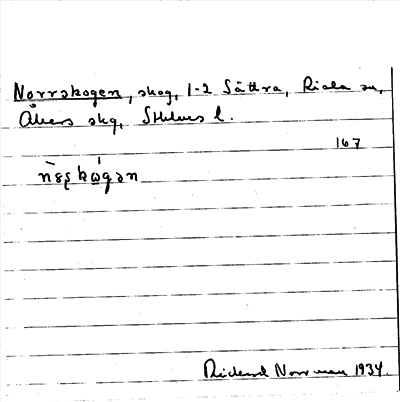 Norrskogen, skog, 1-2 Sättra, Riala sn,
Åkers skg, Sthlms l.
167
Rickard Norrman 1934.